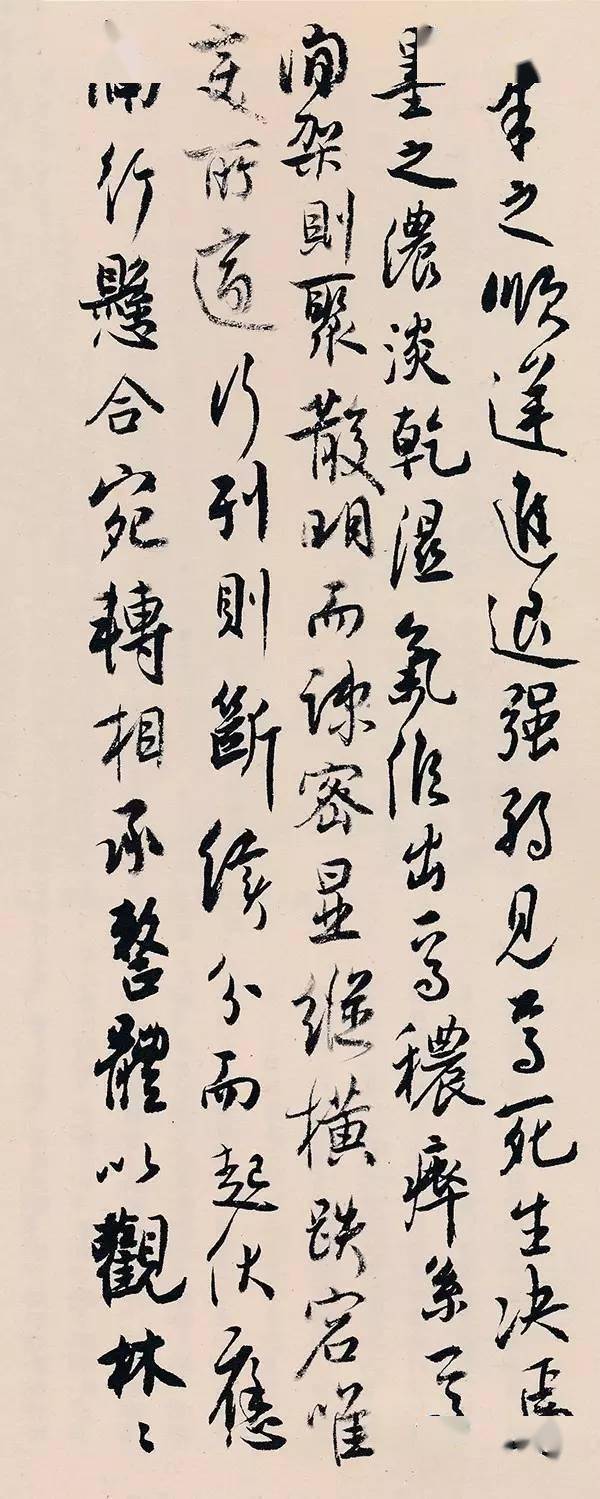 之順逆進退强弱見焉死生决焉
墨之濃淡乾湿氣候出焉穠瘁系焉
間架則聚散明而疎密显縱横跌宕唯
变所適行列則斷續分而起伏應
而行懸合宛轉相承整體以觀林〻